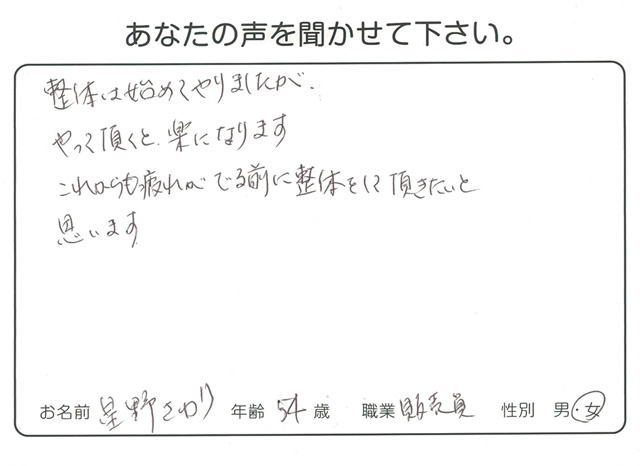 あなたの声を聞かせて下さい。
整体は始めてやりましたが、
やって頂くと、楽になります
これからも疲れがでる前に整体をして頂きたいと
思います
お名前 星野さわり 年齢 54 歳 職業 販売員 性別 男・女